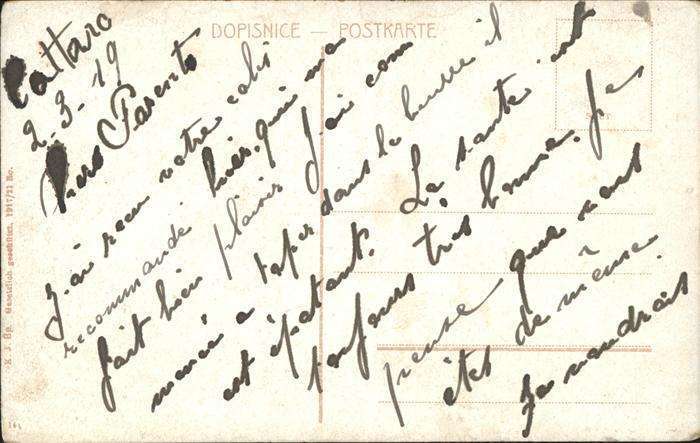 DOPISNICE — POSTKARTE
Cattaro
2-3-19
Chers Parents
J'ai recu votre colis
recommandé hier, qui ma
fait bien plaisir J'ai com
mencé a taper dans le beurre il
est épatant. La santé est
toujours très bonne, je
pense que vous
êtes de même.
Je voudrais
K. J. Bp. Gesetzlich geschützt. 1917/21 Ro.